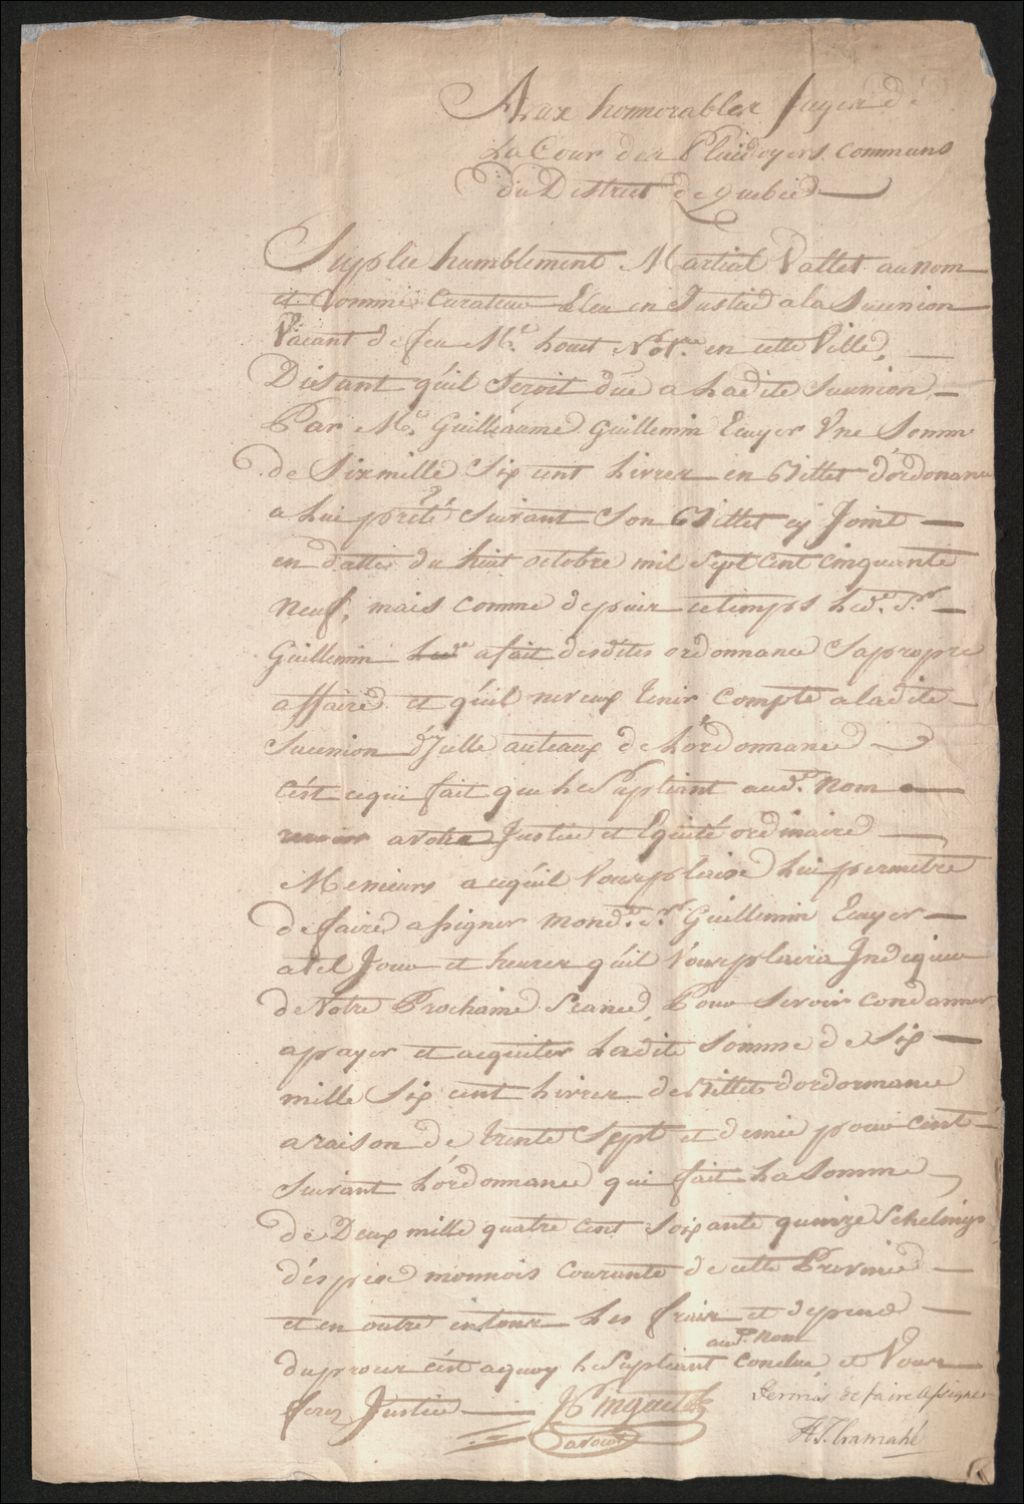 Aux honnorables Juges de
La Cour des Plaidoyers communs
du District de Quebec
Suplie humblement Martial Vallet au nom
et Comme Curateur Eleu en Justice a la Sucession
Vacant de feu Me. houet Notre. en cette Ville,
Disant qu'il Seroit düe a Ladite Sucession
Par Mr. Guilleaume Guillemin Ecuyer Une Somme
de Six mille Six cent Livres en Billet d'ordonance
a Lui prété Suivant Son Billet cy Joint
en datte du huit octobre mil Sept Cent Cinquante
Neuf, mais comme depuis ce temps Led. Sr.
Guillemin a fait desdites ordonnance Sa propre
affaire et qu'il ne veux tenir Compte a ladite
Sucession d'Jcelle au teaux de Lordonnance
C'est ce qui fait que Le Supliant aud. Nom
a votre Justice et Equité ordinaire
Messieurs a ce qu'il Vous plaise Lui permettre
de faire assigner mond. Sr. Guillemin Ecuyer
a tel Jour et heures qu'il Vous plaira Indiquer
de Votre Prochaine Séance, Pour Se voir condamner
a payer et acquiter Ladite Somme de Six
mille Six cent Livres de Billet d'ordonnance
a raison de trente Sept et demie pour Cent
Suivant L'ordonnance qui fait La Somme
de Deux mille quatre Cent Soixante quinze Schelings
d'éspece monnois Courante de cette Province
et en outre en tous Les frais et depens
du proces c'est a quoy Le Supliant aud. Nom Conclue, et Vous
ferez Justice
Permis de faire assigner
H. T. Cramahé